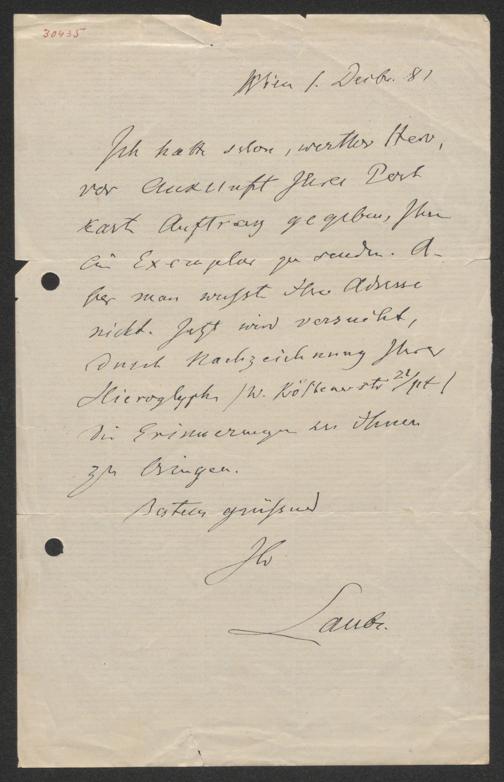 30435
Wien 1. Decbr. 81
Ich hatte schon, werther Herr,
vor Ankunft Ihrer Post
karte Auftrag gegeben, Ihnen
ein Exemplar zu senden. A-
ber man wußte Ihre Adresse
nicht. Jetzt wird versucht,
durch Nachzeichnung Ihrer
Hieroglyphe /W.
die Erinnerungen zu Ihnen
zu bringen.
Bestens grüßend
Ihr
Laube.